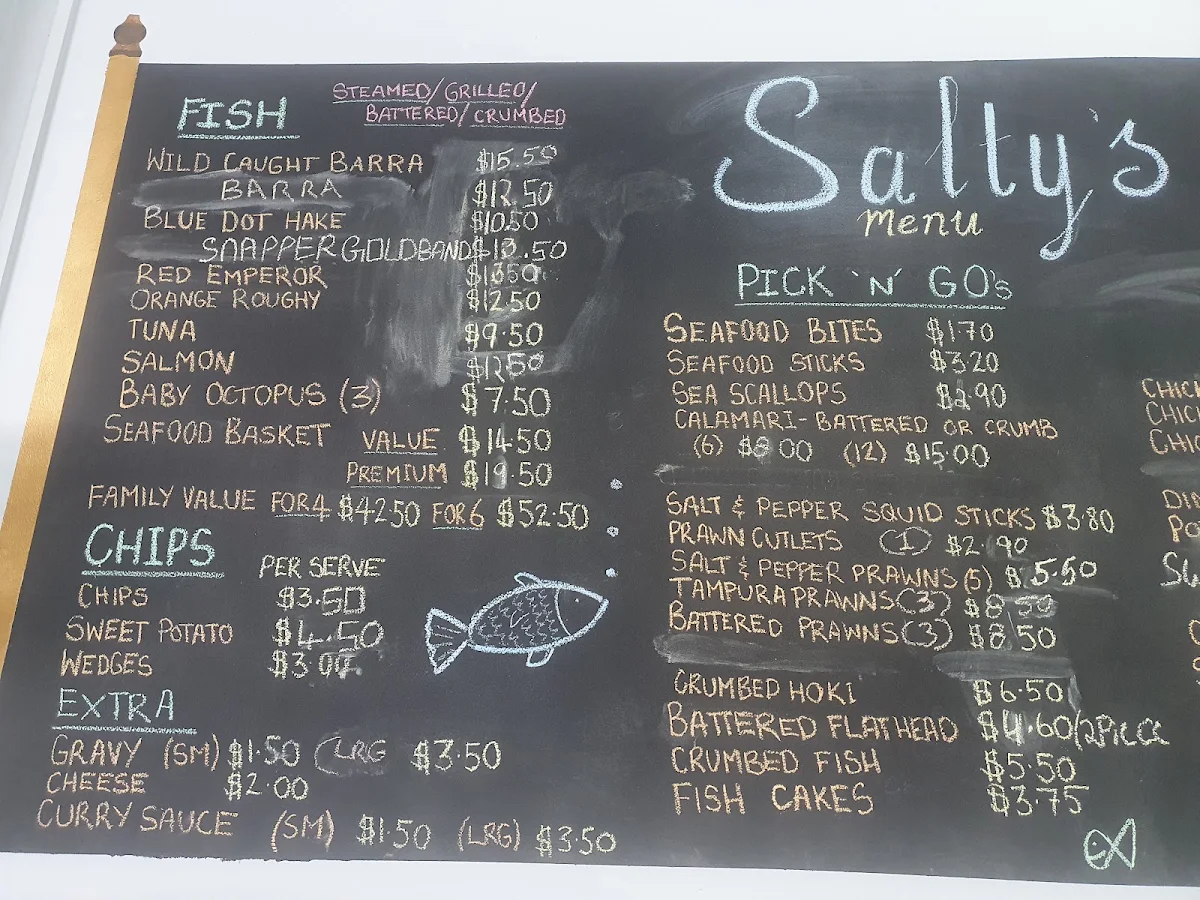 FISH
STEAMED/GRILLED/
BATTERED/CRUMBED
WILD CAUGHT BARRA $15.50
BARRA $12.50
BLUE DOT HAKE $10.50
SNAPPER GOLDBAND $13.50
RED EMPEROR $13.50
ORANGE ROUGHY $12.50
TUNA $9.50
SALMON $12.50
BABY OCTOPUS (3) $7.50
SEAFOOD BASKET VALUE $14.50
PREMIUM $19.50
FAMILY VALUE FOR 4 $42.50 FOR 6 $52.50
CHIPS
PER SERVE
CHIPS $3.50
SWEET POTATO $4.50
WEDGES $3.00
EXTRA
GRAVY (SM) $1.50 (LRG $3.50
CHEESE $2.00
CURRY SAUCE (SM) $1.50 (LRG) $3.50
Salty's
menu
PICK 'N' GO's
SEAFOOD BITES $1.70
SEAFOOD STICKS $3.20
SEA SCALLOPS $2.90
CALAMARI- BATTERED OR CRUMB
(6) $8.00 (12) $15.00
SALT & PEPPER SQUID STICKS $3.80
PRAWN CUTLETS (1) $2.90
SALT & PEPPER PRAWNS (5) $5.50
TAMPURA PRAWNS (3) $8.50
BATTERED PRAWNS (3) $8.50
CRUMBED HOKI $6.50
BATTERED FLATHEAD $4.60/
CRUMBED FISH $5.50
FISH CAKES $3.75